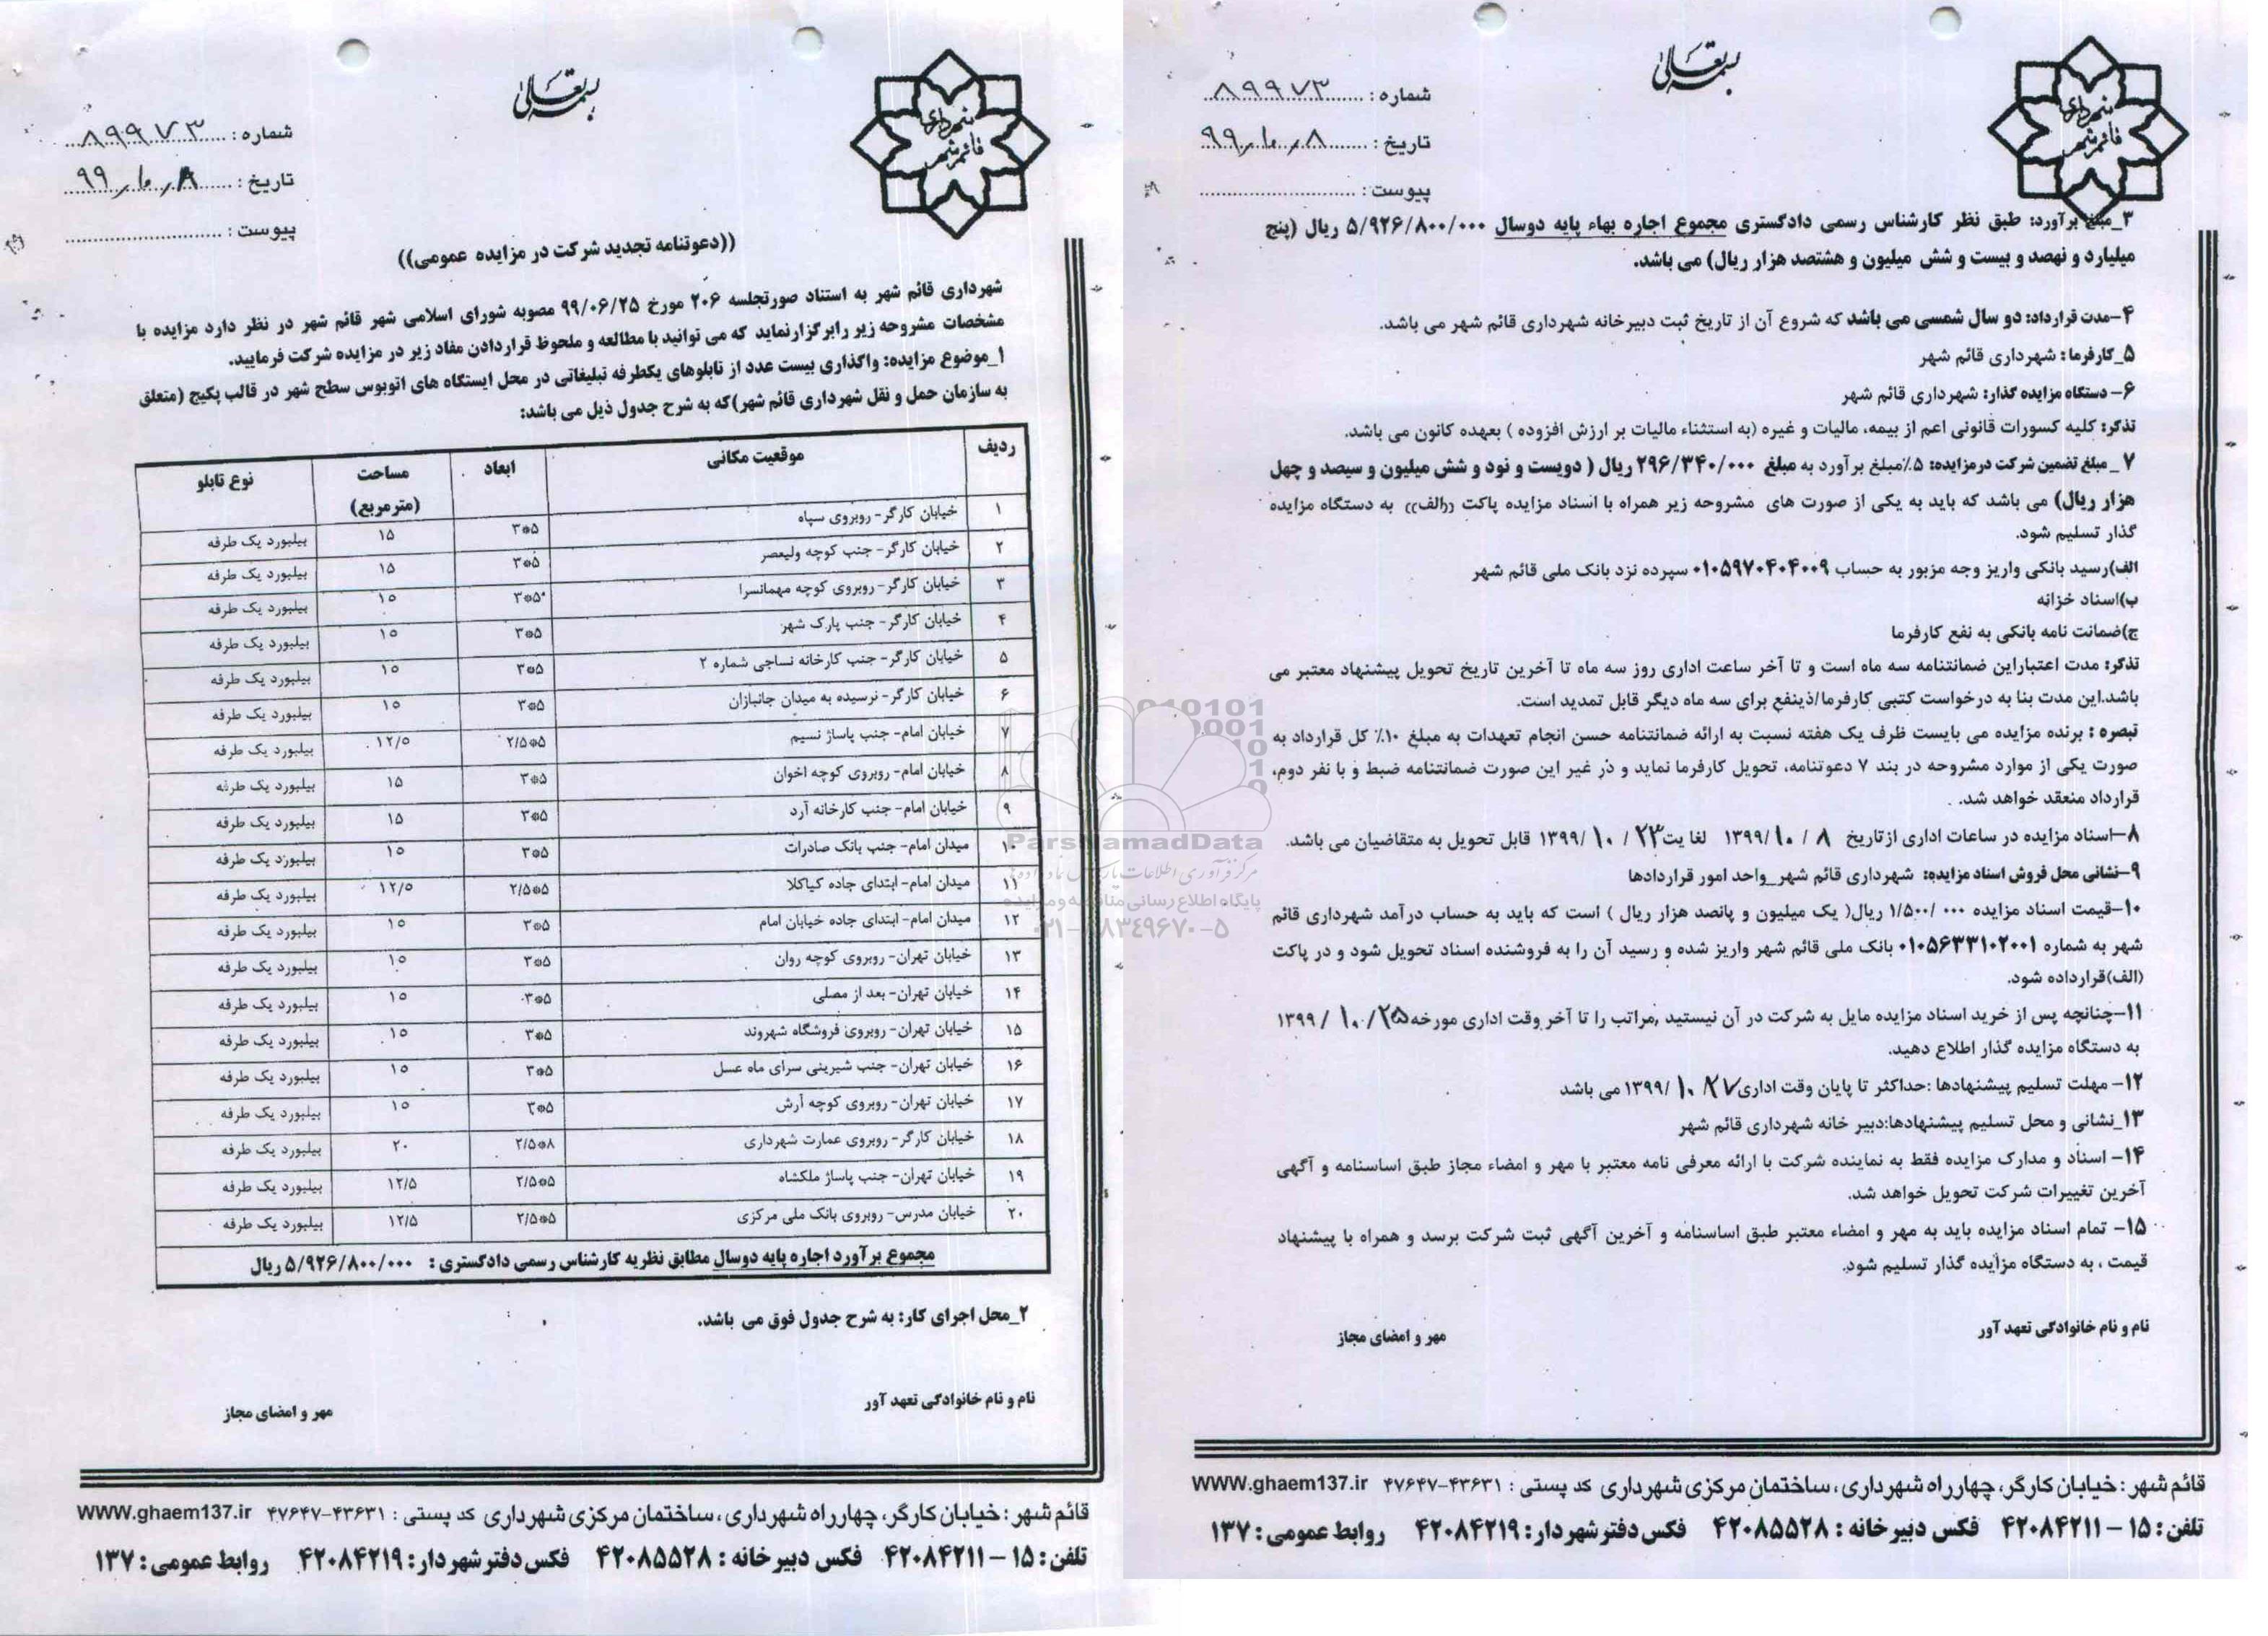 بسمه تعالی
شهرداری
قائم شهر
شماره : ۸۹۹۷۳
تاریخ : ۹۹،۱۰،۸
پیوست :
((دعوتنامه تجدید شرکت در مزایده عمومی))
شهرداری قائم شهر به استناد صورتجلسه ۲۰۶ مورخ ۹۹/۰۶/۲۵ مصوبه شورای اسلامی شهر قائم شهر در نظر دارد مزایده با
مشخصات مشروحه زیر رابرگزارنماید که می توانید با مطالعه و ملحوظ قراردادن مفاد زیر در مزایده شرکت فرمایید.
۱_موضوع مزایده: واگذاری بیست عدد از تابلوهای یکطرفه تبلیغاتی در محل ایستگاه های اتوبوس سطح شهر در قالب پکیج (متعلق
به سازمان حمل و نقل شهرداری قائم شهر)که به شرح جدول ذیل می باشد:
ردیف موقعیت مکانی ابعاد مساحت (مترمربع) نوع تابلو
۱ خیابان کارگر- روبروی سپاه ۳*۵ ۱۵ بیلبورد یک طرفه
۲ خیابان کارگر- جنب کوچه ولیعصر ۳*۵ ۱۵ بیلبورد یک طرفه
۳ خیابان کارگر- روبروی کوچه مهمانسرا ۳*۵ ۱۵ بیلبورد یک طرفه
۴ خیابان کارگر- جنب پارک شهر ۳*۵ ۱۵ بیلبورد یک طرفه
۵ خیابان کارگر- جنب کارخانه نساجی شماره ۲ ۳*۵ ۱۵ بیلبورد یک طرفه
۶ خیابان کارگر- نرسیده به میدان جانبازان ۳*۵ ۱۵ بیلبورد یک طرفه
۷ خیابان امام- جنب پاساژ نسیم ۲/۵*۵ ۱۲/۵ بیلبورد یک طرفه
۸ خیابان امام- روبروی کوچه اخوان ۳*۵ ۱۵ بیلبورد یک طرفه
۹ خیابان امام- جنب کارخانه آرد ۳*۵ ۱۵ بیلبورد یک طرفه
۱۰ میدان امام- جنب بانک صادرات ۳*۵ ۱۵ بیلبورد یک طرفه
۱۱ میدان امام- ابتدای جاده کیاکلا ۲/۵*۵ ۱۲/۵ بیلبورد یک طرفه
۱۲ میدان امام- ابتدای جاده خیابان امام ۳*۵ ۱۵ بیلبورد یک طرفه
۱۳ خیابان تهران- روبروی کوچه روان ۳*۵ ۱۵ بیلبورد یک طرفه
۱۴ خیابان تهران- بعد از مصلی ۳*۵ ۱۵ بیلبورد یک طرفه
۱۵ خیابان تهران- روبروی فروشگاه شهروند ۳*۵ ۱۵ بیلبورد یک طرفه
۱۶ خیابان تهران- جنب شیرینی سرای ماه عسل ۳*۵ ۱۵ بیلبورد یک طرفه
۱۷ خیابان تهران- روبروی کوچه آرش ۳*۵ ۱۵ بیلبورد یک طرفه
۱۸ خیابان کارگر- روبروی عمارت شهرداری ۲/۵*۸ ۲۰ بیلبورد یک طرفه
۱۹ خیابان تهران- جنب پاساژ ملکشاه ۲/۵*۵ ۱۲/۵ بیلبورد یک طرفه
۲۰ خیابان مدرس- روبروی بانک ملی مرکزی ۲/۵*۵ ۱۲/۵ بیلبورد یک طرفه
مجموع برآورد اجاره پایه دوسال مطابق نظریه کارشناس رسمی دادگستری : ۵/۹۲۶/۸۰۰/۰۰۰ ریال
۲_محل اجرای کار: به شرح جدول فوق می باشد.
نام و نام خانوادگی تعهد آور مهر و امضای مجاز
قائم شهر : خیابان کارگر، چهارراه شهرداری، ساختمان مرکزی شهرداری کد پستی : ۴۳۶۳۱-۴۷۶۴۷ WWW.ghaem137.ir
تلفن : ۱۵ - ۴۲۰۸۴۲۱۱ فکس دبیرخانه : ۴۲۰۸۵۵۲۸ فکس دفتر شهردار: ۴۲۰۸۴۲۱۹ روابط عمومی : ۱۳۷
بسمه تعالی
شهرداری
قائم شهر
شماره : ۸۹۹۷۳
تاریخ : ۹۹،۱۰،۸
پیوست :
۳_مبلغ برآورد: طبق نظر کارشناس رسمی دادگستری مجموع اجاره بهاء پایه دوسال ۵/۹۲۶/۸۰۰/۰۰۰ ریال (پنج
میلیارد و نهصد و بیست و شش میلیون و هشتصد هزار ریال) می باشد.
۴-مدت قرارداد: دو سال شمسی می باشد که شروع آن از تاریخ ثبت دبیرخانه شهرداری قائم شهر می باشد.
۵_کارفرما : شهرداری قائم شهر
۶- دستگاه مزایده گذار: شهرداری قائم شهر
تذکر: کلیه کسورات قانونی اعم از بیمه، مالیات و غیره (به استثناء مالیات بر ارزش افزوده ) بعهده کانون می باشد.
۷_مبلغ تضمین شرکت درمزایده: ۵٪مبلغ برآورد به مبلغ ۲۹۶/۳۴۰/۰۰۰ ریال ( دویست و نود و شش میلیون و سیصد و چهل
هزار ریال) می باشد که باید به یکی از صورت های مشروحه زیر همراه با اسناد مزایده پاکت ((الف)) به دستگاه مزایده
گذار تسلیم شود.
الف)رسید بانکی واریز وجه مزبور به حساب ۰۱۰۵۹۷۰۴۰۴۰۰۹ سپرده نزد بانک ملی قائم شهر
ب)اسناد خزانه
ج)ضمانت نامه بانکی به نفع کارفرما
تذکر: مدت اعتباراین ضمانتنامه سه ماه است و تا آخر ساعت اداری روز سه ماه تا آخرین تاریخ تحویل پیشنهاد معتبر می
باشد.این مدت بنا به درخواست کتبی کارفرما/ذینفع برای سه ماه دیگر قابل تمدید است.
تبصره : برنده مزایده می بایست ظرف یک هفته نسبت به ارائه ضمانتنامه حسن انجام تعهدات به مبلغ ۱۰٪ کل قرارداد به
صورت یکی از موارد مشروحه در بند ۷ دعوتنامه، تحویل کارفرما نماید و در غیر این صورت ضمانتنامه ضبط و با نفر دوم،
قرارداد منعقد خواهد شد.
۸-اسناد مزایده در ساعات اداری ازتاریخ ۸ / ۱۰ /۱۳۹۹ لغا یت ۲۳ / ۱۰ /۱۳۹۹ قابل تحویل به متقاضیان می باشد.
۹-نشانی محل فروش اسناد مزایده: شهرداری قائم شهر_واحد امور قراردادها
۱۰-قیمت اسناد مزایده ۱/۵۰۰/۰۰۰ ریال( یک میلیون و پانصد هزار ریال ) است که باید به حساب درآمد شهرداری قائم
شهر به شماره ۰۱۰۵۶۳۳۱۰۲۰۰۱ بانک ملی قائم شهر واریز شده و رسید آن را به فروشنده اسناد تحویل شود و در پاکت
(الف)قرارداده شود.
۱۱-چنانچه پس از خرید اسناد مزایده مایل به شرکت در آن نیستید ,مراتب را تا آخر وقت اداری مورخه ۲۵/ ۱۰ / ۱۳۹۹
به دستگاه مزایده گذار اطلاع دهید.
۱۲- مهلت تسلیم پیشنهادها :حداکثر تا پایان وقت اداری ۲۷/ ۱۰ /۱۳۹۹ می باشد
۱۳_نشانی و محل تسلیم پیشنهادها:دبیر خانه شهرداری قائم شهر
۱۴- اسناد و مدارک مزایده فقط به نماینده شرکت با ارائه معرفی نامه معتبر با مهر و امضاء مجاز طبق اساسنامه و آگهی
آخرین تغییرات شرکت تحویل خواهد شد.
۱۵- تمام اسناد مزایده باید به مهر و امضاء معتبر طبق اساسنامه و آخرین آگهی ثبت شرکت برسد و همراه با پیشنهاد
قیمت ، به دستگاه مزایده گذار تسلیم شود.
نام و نام خانوادگی تعهد آور مهر و امضای مجاز
قائم شهر : خیابان کارگر، چهارراه شهرداری، ساختمان مرکزی شهرداری کد پستی : ۴۳۶۳۱-۴۷۶۴۷ WWW.ghaem137.ir
تلفن : ۱۵ - ۴۲۰۸۴۲۱۱ فکس دبیرخانه : ۴۲۰۸۵۵۲۸ فکس دفتر شهردار: ۴۲۰۸۴۲۱۹ روابط عمومی : ۱۳۷
ParsNamadData
پایگاه اطلاع رسانی مناقصه و مزایده
۰۲۱-۸۸۳۴۹۶۷۰-۵